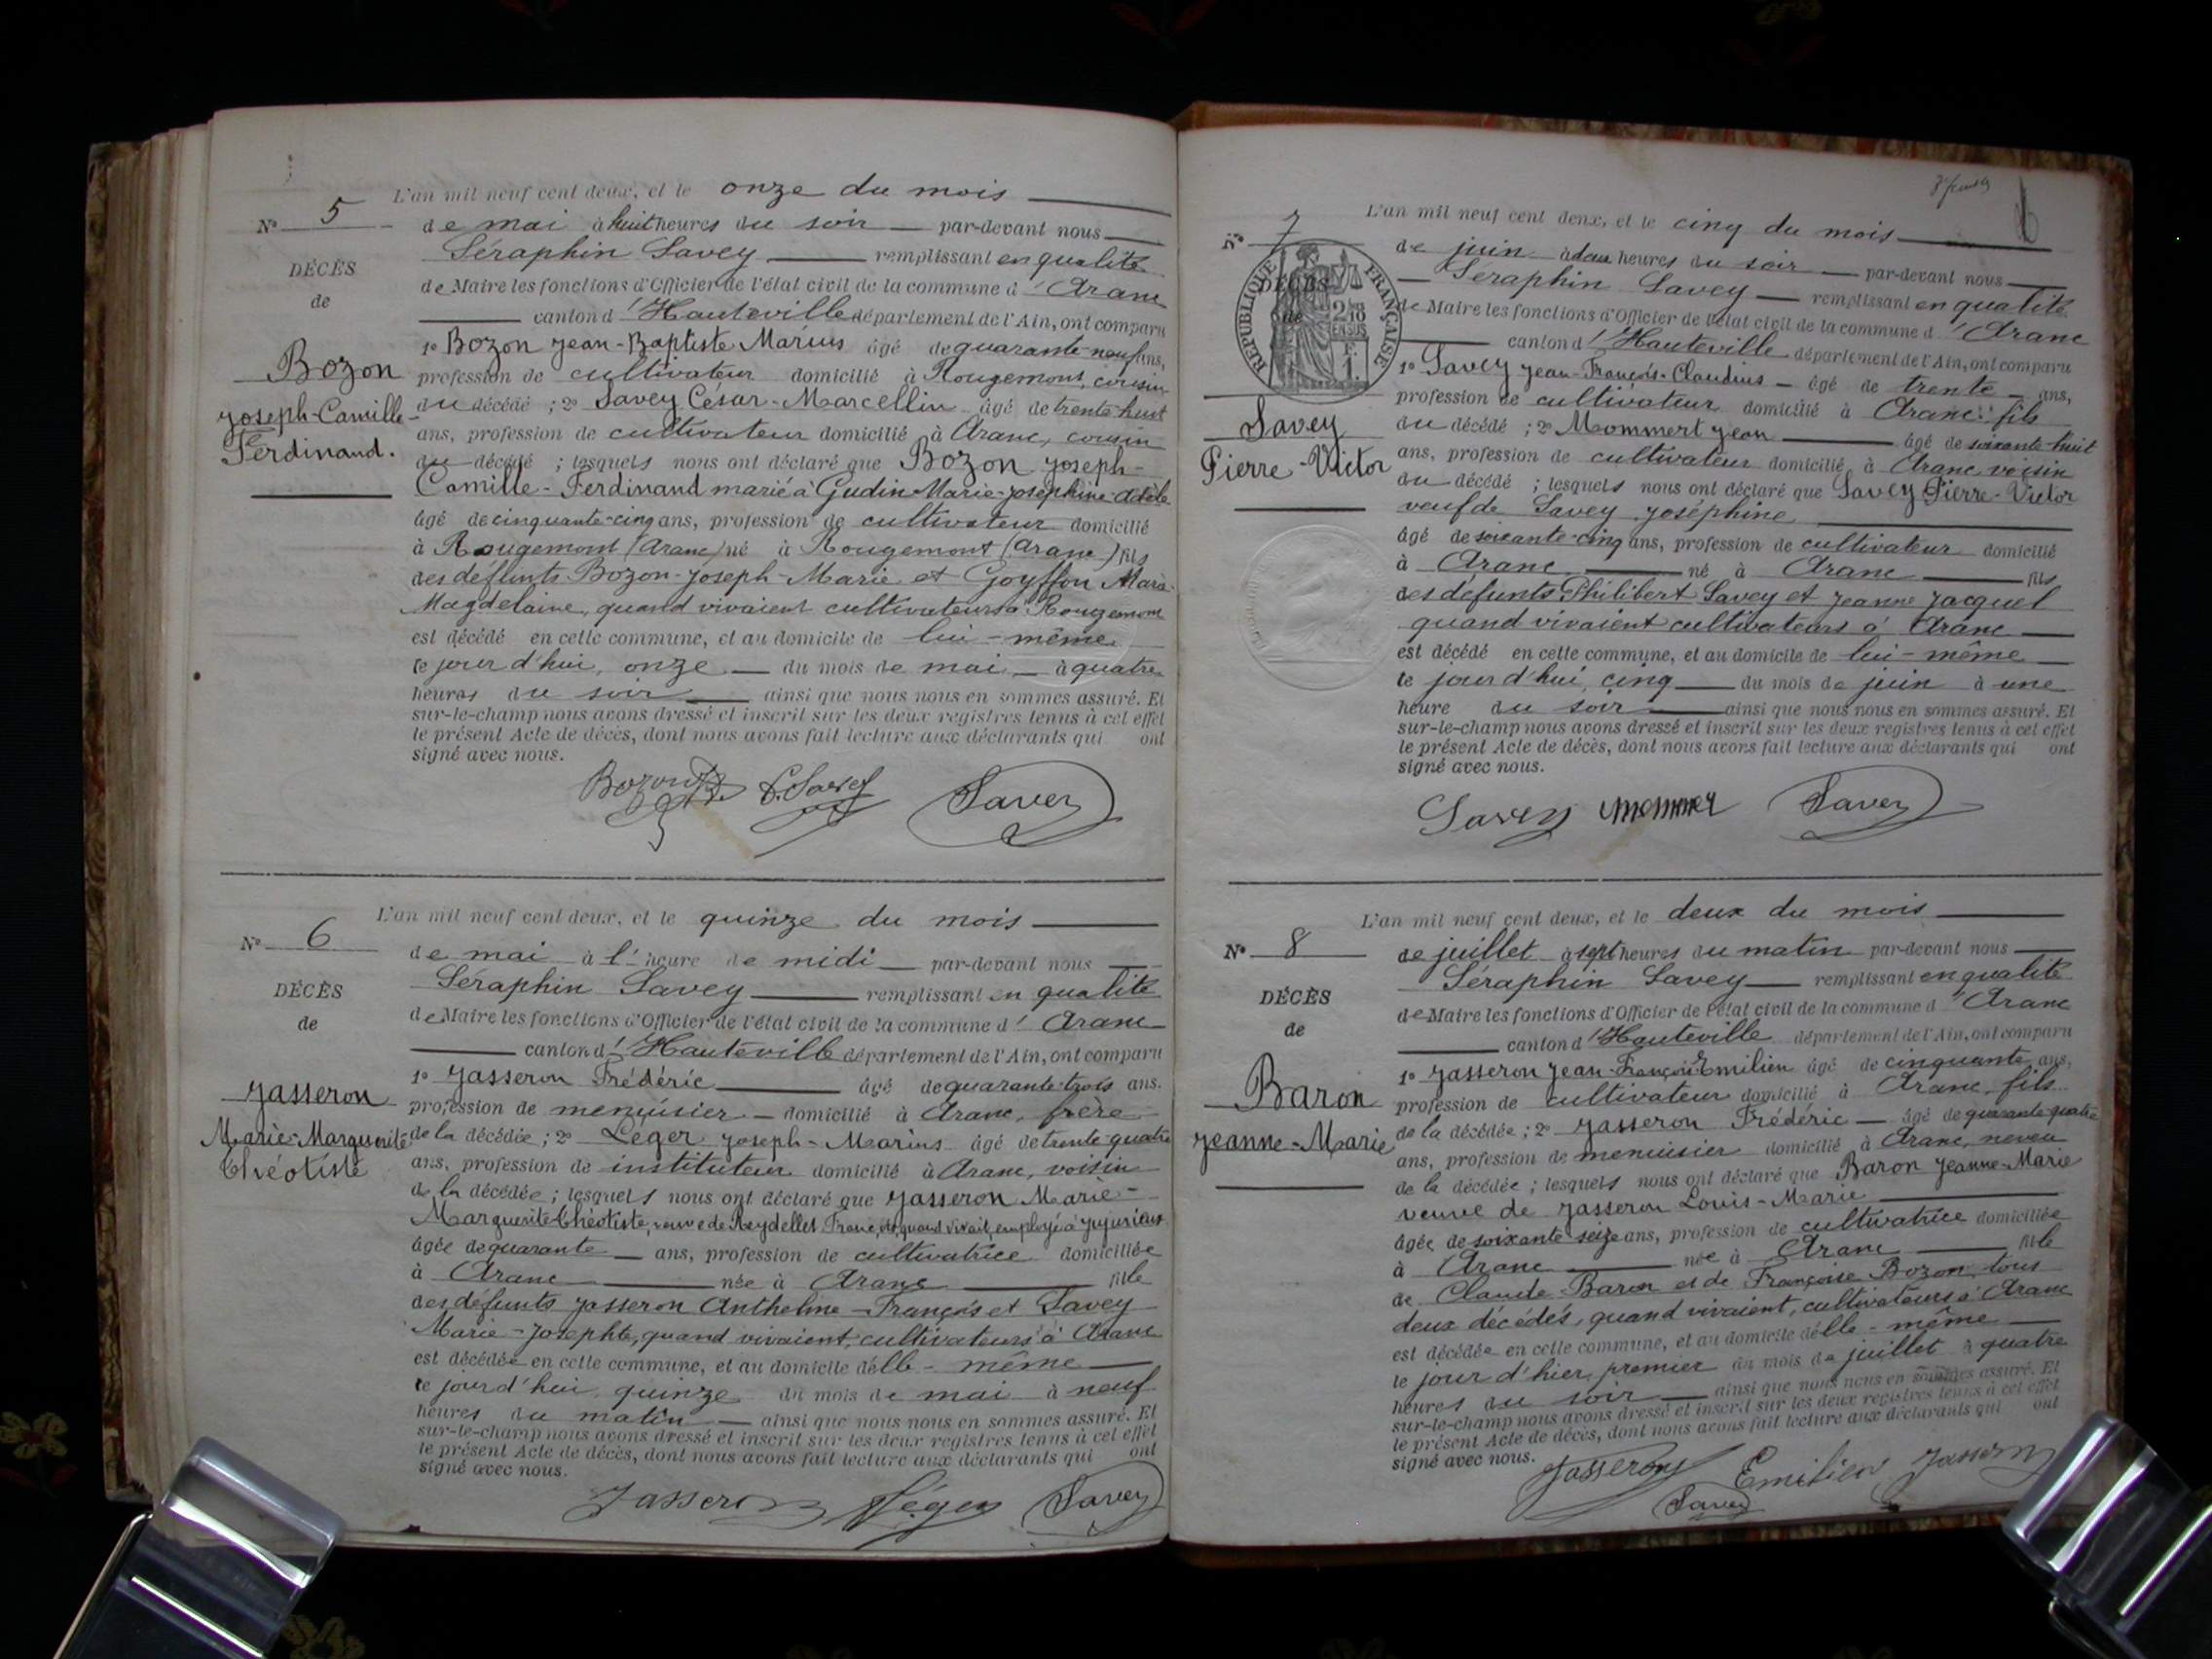 L'an mil neuf cent deux, et le onze du mois
N° 5
de mai à huit heures du soir par-devant nous
Séraphin Savey remplissant en qualité
DÉCÈS
de Maire les fonctions d'Officier de l'état civil de la commune d' Aranc
de
canton d' Hauteville département de l'Ain, ont comparu
1° Bozon Jean-Baptiste Marius âgé de quarante-neuf ans,
Bozon
profession de cultivateur domicilié à Rougemont, cousin
Joseph-Camille-
du décédé ; 2° Savey César-Marcellin âgé de trente-huit
Ferdinand.
ans, profession de cultivateur domicilié à Aranc, cousin
du décédé ; lesquels nous ont déclaré que Bozon Joseph-
Camille-Ferdinand marié à Gudin Marie-Joséphine-Adèle
âgé de cinquante-cinq ans, profession de cultivateur domicilié
à Rougemont (Aranc) né à Rougemont (Aranc) fils
des défunts Bozon-Joseph-Marie et Goyffon Marie-
Magdelaine, quand vivaient cultivateurs à Rougemont
est décédé en cette commune, et au domicile de lui-même
le jour d'hui, onze du mois de mai à quatre
heures du soir ainsi que nous nous en sommes assuré. Et
sur-le-champ nous avons dressé et inscrit sur les deux registres tenus à cet effet
le présent Acte de décès, dont nous avons fait lecture aux déclarants qui ont
signé avec nous.
Savey
L'an mil neuf cent deux, et le quinze du mois
N° 6
de mai à l'heure de midi par-devant nous
Séraphin Savey remplissant en qualité
DÉCÈS
de Maire les fonctions d'Officier de l'état civil de la commune d' Aranc
de
canton d' Hauteville département de l'Ain, ont comparu
1° Jasseron Frédéric âgé de quarante-trois ans.
Jasseron
profession de menuisier domicilié à Aranc, frère
Marie-Marguerite
de la décédée ; 2° Léger Joseph-Marius âgé de trente-quatre
Théotiste
ans, profession de instituteur domicilié à Aranc, voisin
de la décédée ; lesquels nous ont déclaré que Jasseron Marie-
Marguerite-Théotiste, veuve de Reydellet quand vivait, employé à Jujurieux
âgée de quarante ans, profession de cultivatrice domiciliée
à Aranc née à Aranc fille
des défunts Jasseron Anthelme-François et Savey
Marie-Josephte, quand vivaient, cultivateurs à Aranc
est décédée en cette commune, et au domicile d'elle-même
le jour d'hui, quinze du mois de mai à neuf
heures du matin ainsi que nous nous en sommes assuré. Et
sur-le-champ nous avons dressé et inscrit sur les deux registres tenus à cet effet
le présent Acte de décès, dont nous avons fait lecture aux déclarants qui ont
signé avec nous.
Jasseron Léger Savey
L'an mil neuf cent deux, et le cinq du mois
N° 7
de juin à deux heures du soir par-devant nous
Séraphin Savey remplissant en qualité
RÉPUBLIQUE FRANÇAISE
DÉCÈS
de
de Maire les fonctions d'Officier de l'état civil de la commune d' Aranc
canton d' Hauteville département de l'Ain, ont comparu
1° Savey Jean-François-Claudius âgé de trente ans,
profession de cultivateur domicilié à Aranc fils
Savey
du décédé ; 2° Mommert Jean âgé de soixante-huit
Pierre-Victor
ans, profession de cultivateur domicilié à Aranc voisin
du décédé ; lesquels nous ont déclaré que Savey Pierre-Victor
veuf de Savey Joséphine
âgé de soixante-cinq ans, profession de cultivateur domicilié
à Aranc né à Aranc fils
des défunts Philibert Savey et Jeanne Jacquet
quand vivaient cultivateurs à Aranc
est décédé en cette commune, et au domicile de lui-même
le jour d'hui, cinq du mois de juin à une
heure du soir ainsi que nous nous en sommes assuré. Et
sur-le-champ nous avons dressé et inscrit sur les deux registres tenus à cet effet
le présent Acte de décès, dont nous avons fait lecture aux déclarants qui ont
signé avec nous.
Savey Savey
L'an mil neuf cent deux, et le deux du mois
N° 8
de juillet à sept heures du matin par-devant nous
Séraphin Savey remplissant en qualité
DÉCÈS
de Maire les fonctions d'Officier de l'état civil de la commune d' Aranc
de
canton d' Hauteville département de l'Ain, ont comparu
1° Jasseron Jean-François-Emilien âgé de cinquante ans,
Baron
profession de cultivateur domicilié à Aranc, fils
Jeanne-Marie
de la décédée ; 2° Jasseron Frédéric âgé de quarante-quatre
ans, profession de menuisier domicilié à Aranc, neveu
de la décédée ; lesquels nous ont déclaré que Baron Jeanne-Marie
veuve de Jasseron Louis-Marie
âgée de soixante-seize ans, profession de cultivatrice domiciliée
à Aranc née à Aranc fille
de Claude Baron et de Françoise Bozon, tous
deux décédés, quand vivaient, cultivateurs à Aranc
est décédée en cette commune, et au domicile d'elle-même
le jour d'hier, premier du mois de juillet à quatre
heures du soir ainsi que nous nous en sommes assuré. Et
sur-le-champ nous avons dressé et inscrit sur les deux registres tenus à cet effet
le présent Acte de décès, dont nous avons fait lecture aux déclarants qui ont
signé avec nous.
Jasseron Emilien Jasseron
Savey